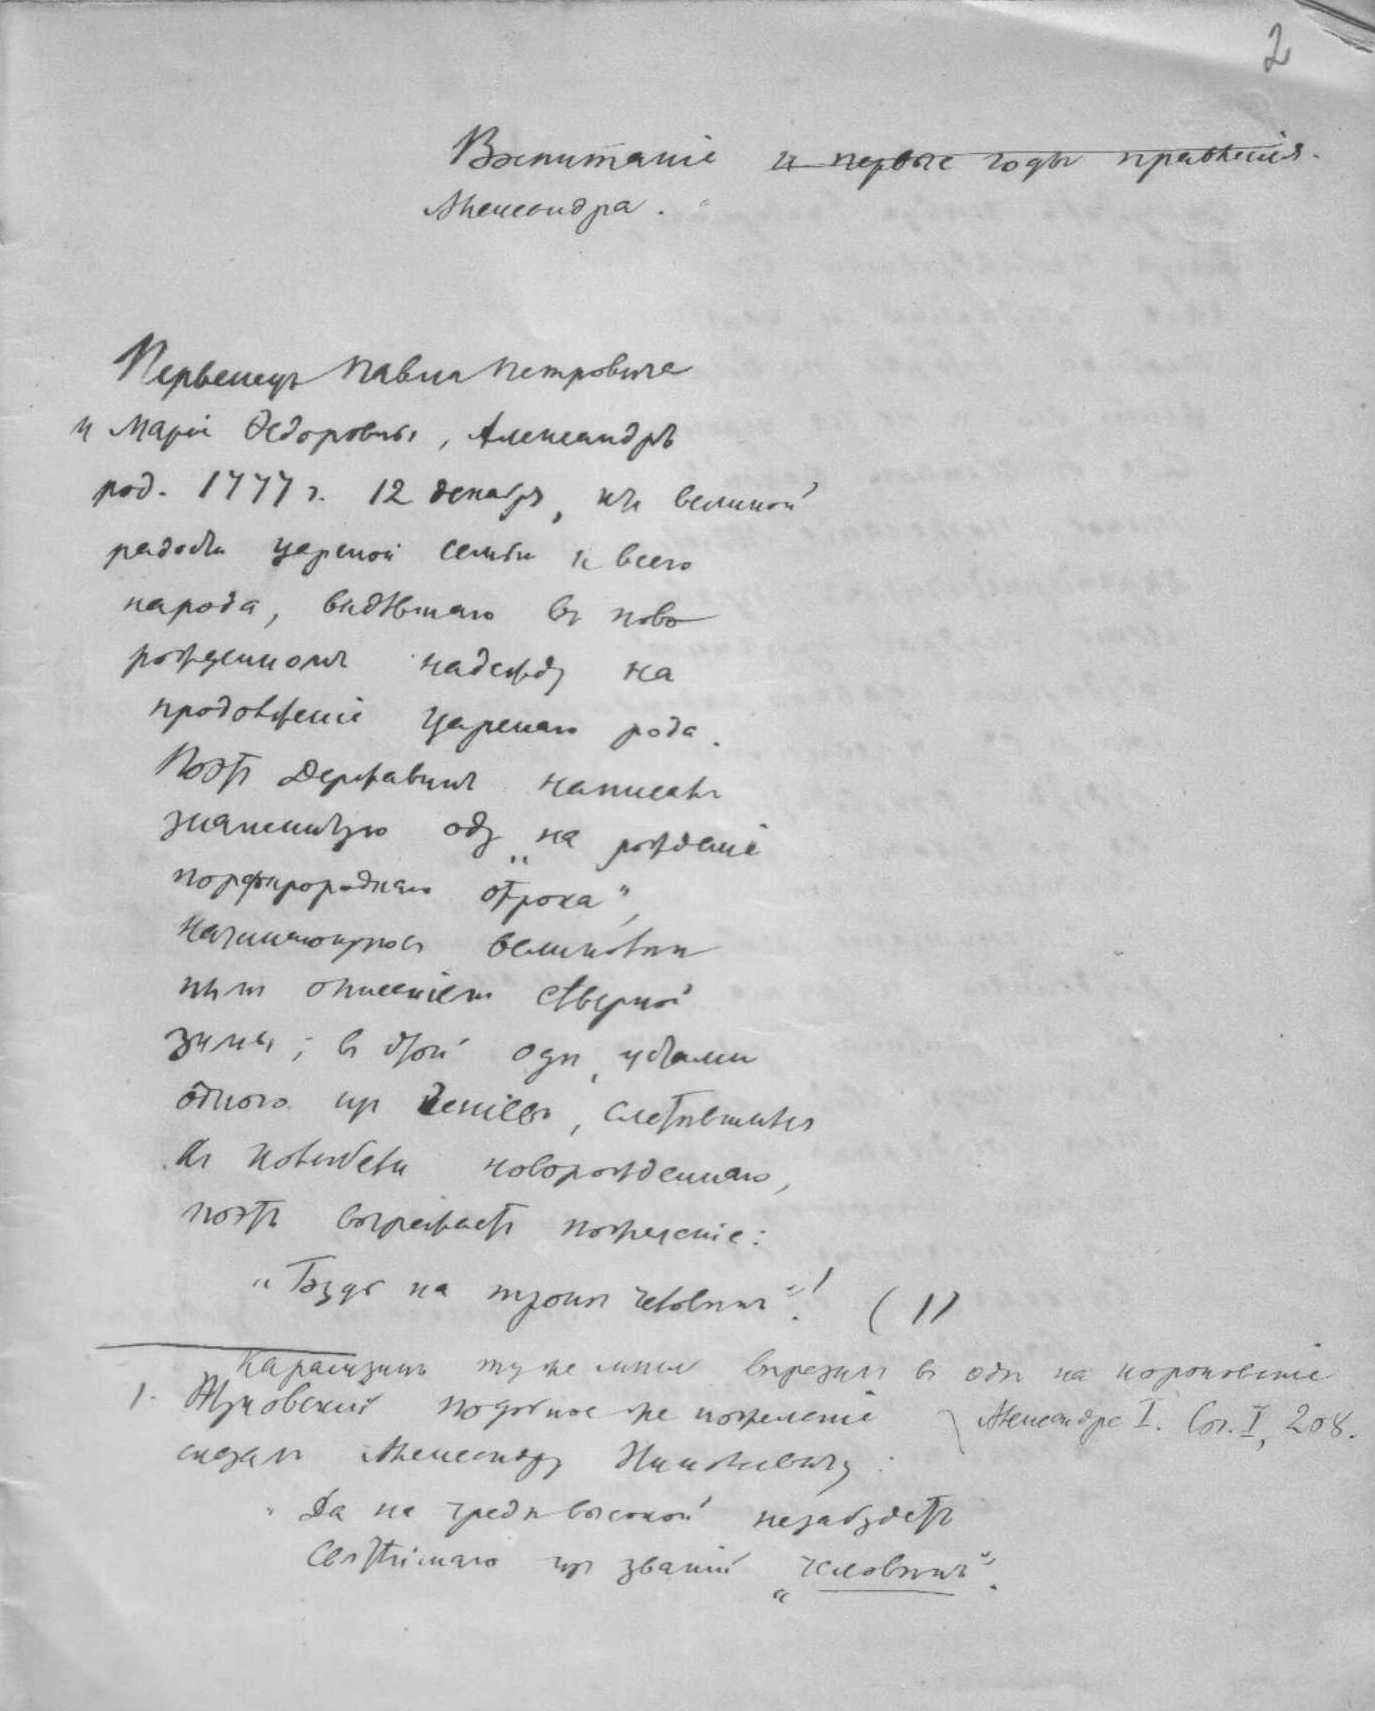 2
Воспитаніе и первые годы правленія.
Александра.
Первенецъ Павла Петровича
и Маріи Ѳедоровны, Александръ
род. 1777 г. 12 декабря, къ великой
радости царской семьи и всего
народа, видѣвшаго въ ново
рожденномъ надежду на
продолженіе царскаго рода.
Поэтъ Державинъ написалъ
знаменитую оду „на рожденіе
порфиророднаго отрока“,
начинающуюся великолѣп
нымъ описаніемъ сѣверной
зимы; въ этой одѣ, устами
одного изъ геніевъ, слетѣвшихся
къ колыбели новорожденнаго,
поэтъ выражаетъ пожеланіе:
„Будь на тронѣ человѣкъ“! (1)
Карамзинъ ту же мысль выразилъ въ одѣ на коронованіе
Александра I. Соч. I, 208.
1. Жуковскій подобное же пожеланіе
сказалъ Александру Николаевичу:
„Да на чредѣ высокой незабудетъ
Святѣйшаго изъ званій „человѣкъ“.